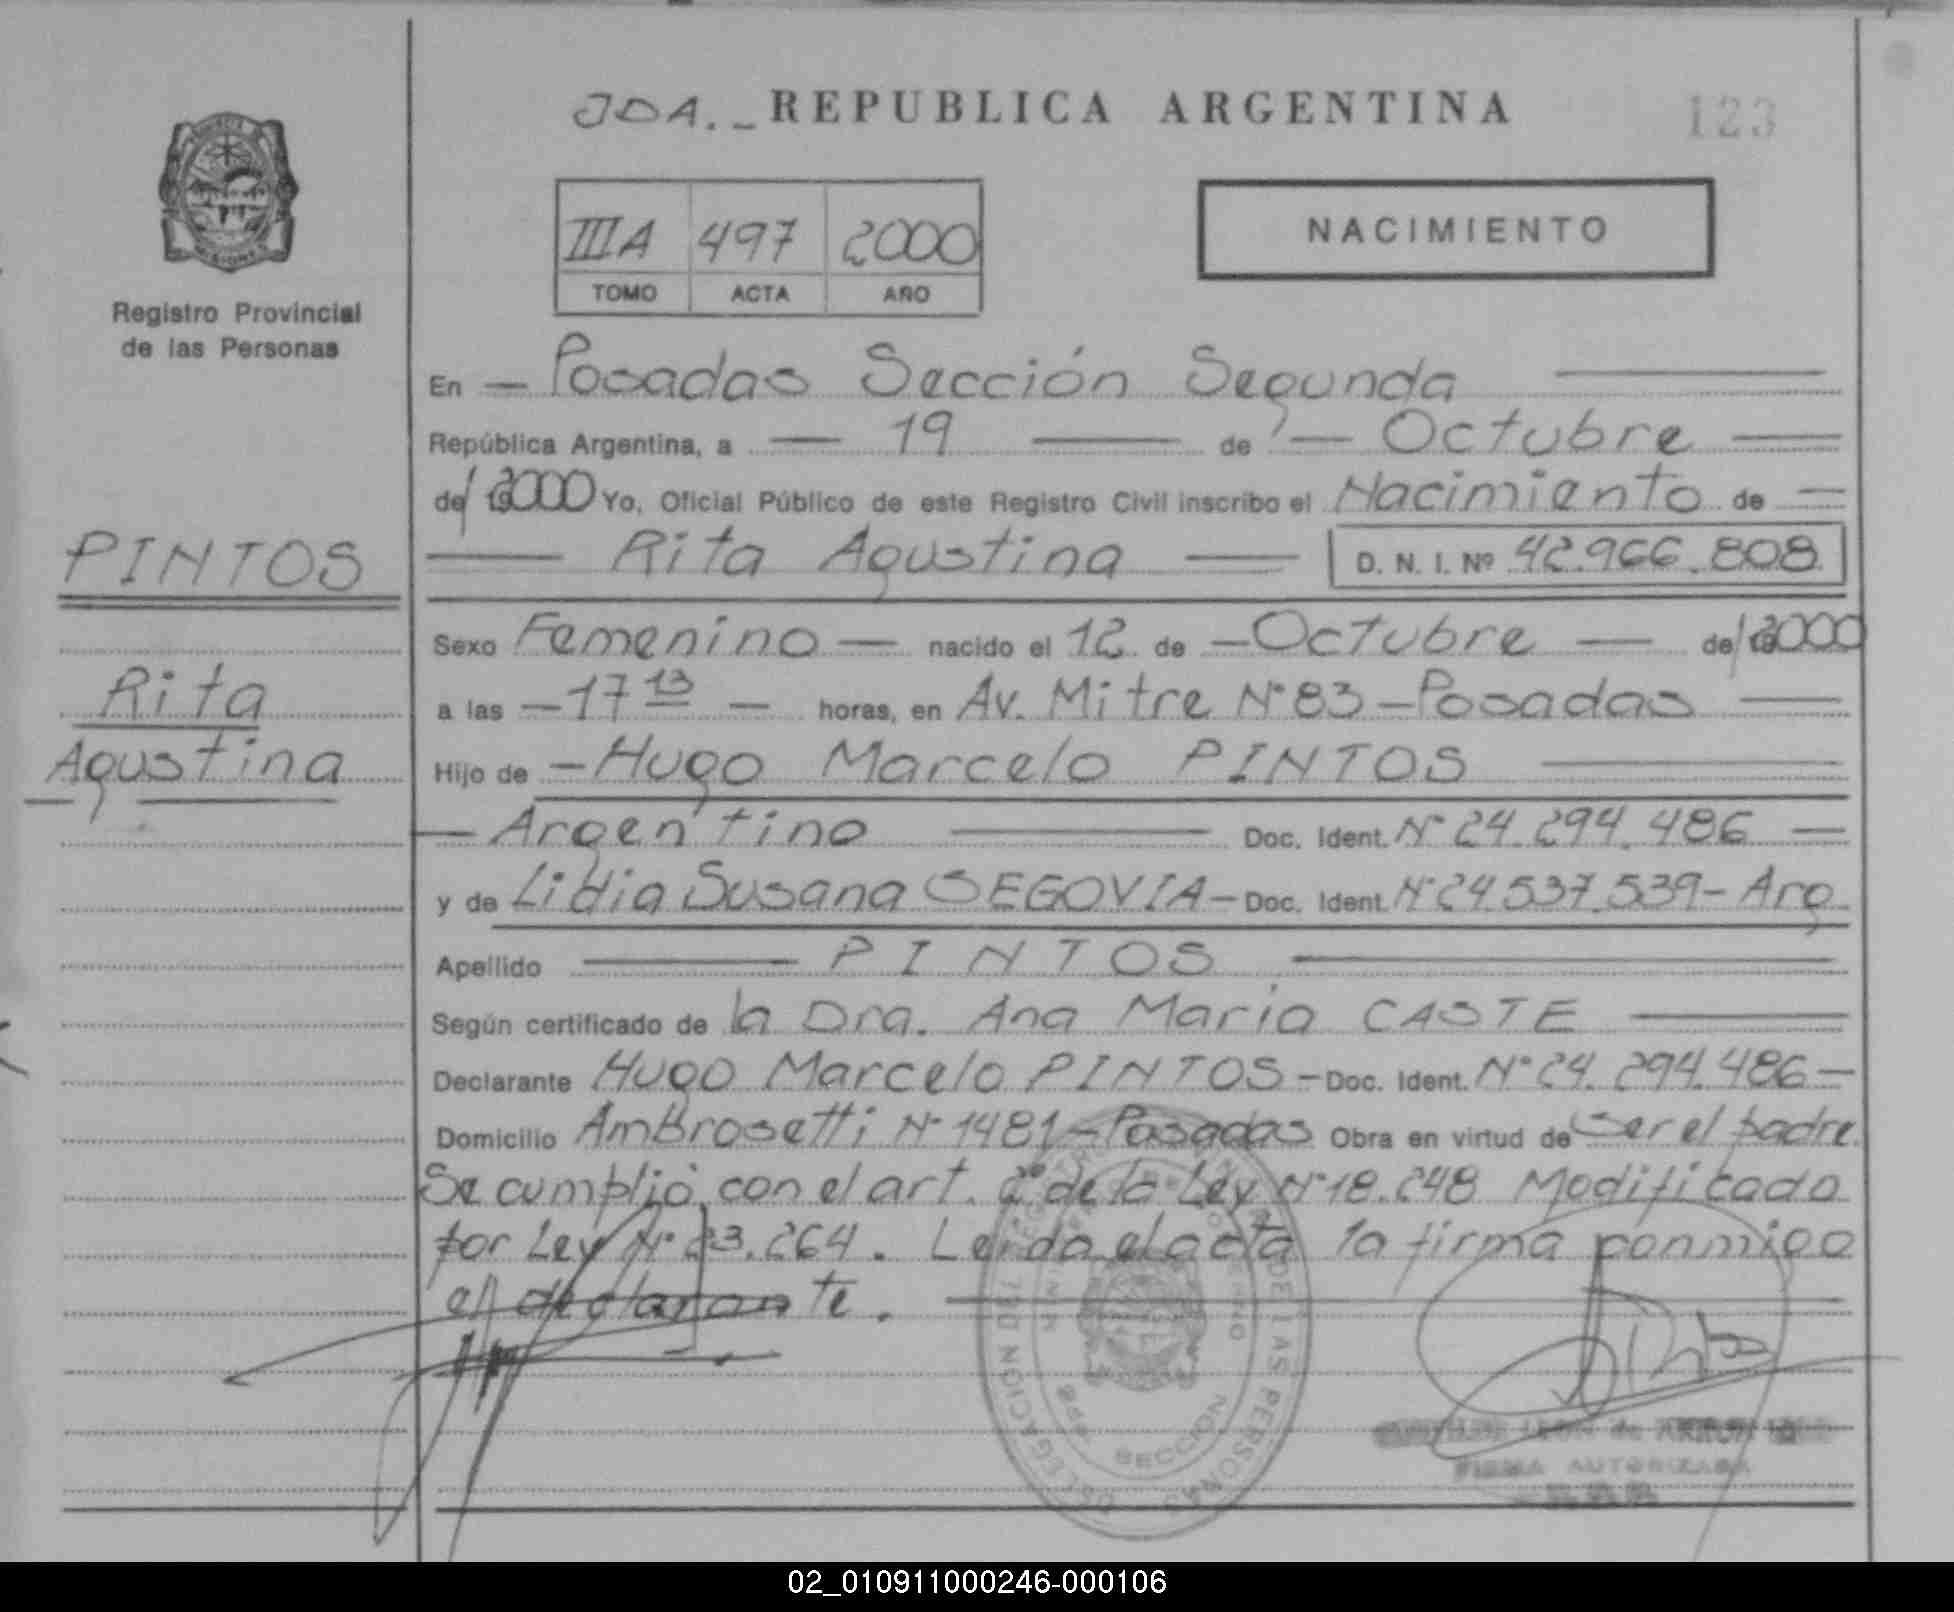 JDA._ REPUBLICA ARGENTINA
123
IIIA 497 2000
TOMO ACTA AÑO
NACIMIENTO
Registro Provincial
de las Personas
En — Posadas Sección Segunda —
República Argentina, a — 19 — de — Octubre —
de 2000 Yo, Oficial Público de este Registro Civil inscribo el Nacimiento de —
— Rita Agustina — D. N. I. Nº 42.966.808
PINTOS
Rita
Agustina
Sexo Femenino — nacido el 12 de — Octubre — de 2000
a las — 17 13 — horas, en Av. Mitre Nº 83 - Posadas —
Hijo de — Hugo Marcelo PINTOS —
— Argentino — Doc. Ident. Nº 24.294.486 —
y de Lidia Susana SEGOVIA - Doc. Ident. Nº 24.537.539 - Arg
Apellido — PINTOS —
Según certificado de la Dra. Ana Maria CASTE —
Declarante Hugo Marcelo PINTOS - Doc. Ident. Nº 24.294.486 —
Domicilio Ambrosetti Nº 1481 - Posadas Obra en virtud de ser el padre.
Se cumplió con el art. 2º de la Ley Nº 18.248 Modificado
por Ley Nº 23.264. Leida el acta la firma conmigo
el declarante. —
DELEGACION DE LAS PERSONAS
SECCION
LEON de
FIRMA AUTORIZADA
02_010911000246-000106